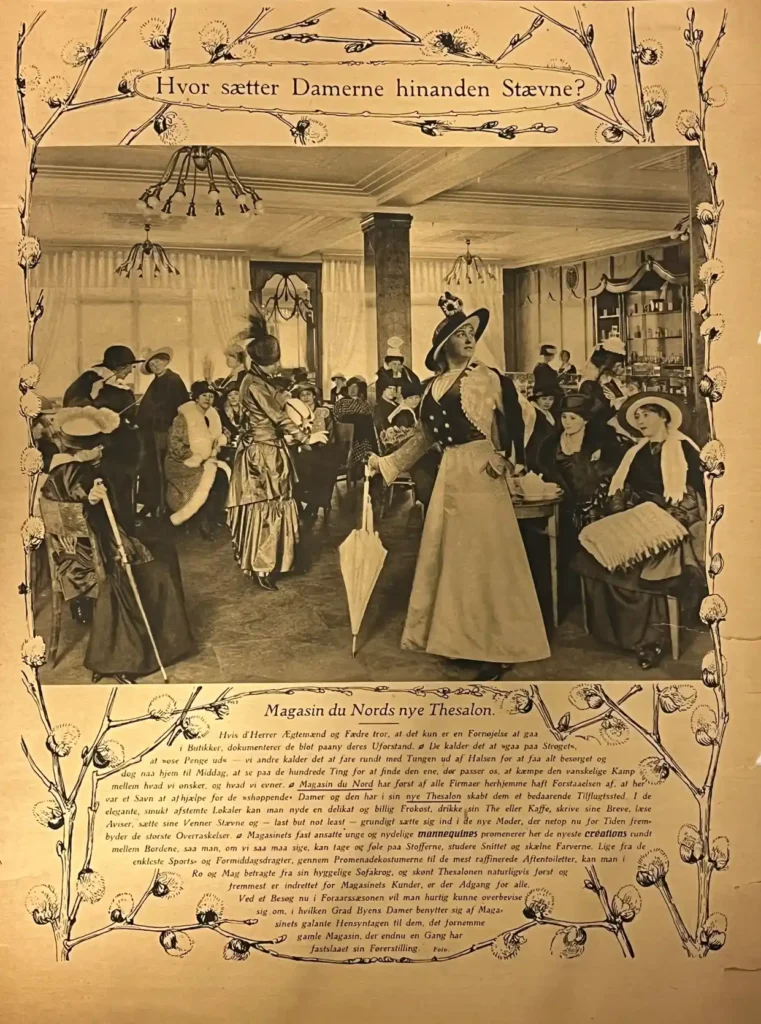 Hvor sætter Damerne hinanden Stævne?
Magasin du Nords nye Thesalon.
Hvis d'Herrer Ægtemænd og Fædre tror, at det kun er en Fornøjelse at gaa
i Butikker, dokumenterer de blot paany deres Uforstand. ⸗ De kalder det »gaa paa Strøget«,
at »øse Penge ud« — vi andre kalder det at fare rundt med Tungen ud af Halsen for at faa alt besørget og
dog naa hjem til Middag, at se paa de hundrede Ting for at finde den ene, der passer os, at kæmpe den vanskelige Kamp
mellem hvad vi ønsker, og hvad vi evner. ⸗ Magasin du Nord har først af alle Firmaer herhjemme haft Forstaaelsen af, at her
var et Savn at afhjælpe for de »shoppende« Damer og den har i sin nye Thesalon skabt dem et bedaarende Tilflugtssted. I de
elegante, smukt afstemte Lokaler kan man nyde en delikat og billig Frokost, drikke sin The eller Kaffe, skrive sine Breve, læse
Aviser, sætte sine Venner Stævne og — last but not least — grundigt sætte sig ind i de nye Moder, der netop nu for Tiden frem-
byder de største Overraskelser. ⸗ Magasinets fast ansatte unge og nydelige mannequines promenerer her de nyeste créations rundt
mellem Bordene, saa man, om vi saa maa sige, kan tage og føle paa Stofferne, studere Snittet og skælne Farverne. Lige fra de
enkleste Sports- og Formiddagsdragter, gennem Promenadekostumerne til de mest raffinerede Aftentoiletter, kan man i
Ro og Mag betragte fra sin hyggelige Sofakrog, og skønt Thesalonen naturligvis først og
fremmest er indrettet for Magasinets Kunder, er der Adgang for alle.
Ved et Besøg nu i Foraarssæsonen vil man hurtig kunne overbevise
sig om, i hvilken Grad Byens Damer benytter sig af Maga-
sinets galante Hensyntagen til dem, det fornemme
gamle Magasin, der endnu en Gang har
fastslaaet sin Førerstilling. Foto.